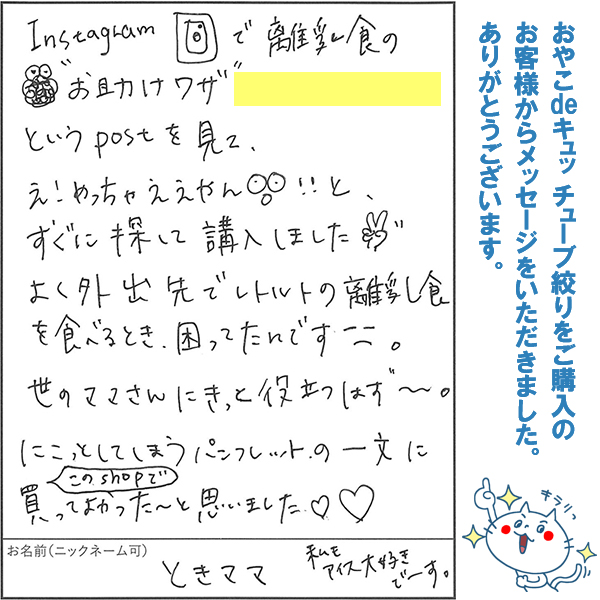 おやこdeキュッ チューブ絞りをご購入の
お客様からメッセージをいただきました。
ありがとうございます。
Instagram で離乳食の
"お助けワザ"
というpostを見て、
え!めっちゃええやん!!と、
すぐに探して購入しました
よく外出先でレトルトの離乳食
を食べるとき、困ってたんです。
世のママさんにきっと役立つはず〜。
にこっとしてしまうパンフレットの一文に
このshopで
買ってよかった〜と思いました♡♡
お名前(ニックネーム可)
ときママ
私も
アイス大好き
でーす。
キラリッ